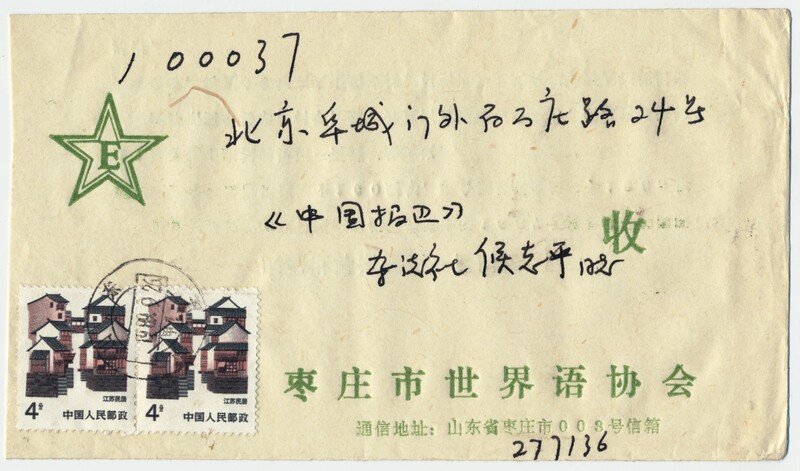 100037
E
北京阜城门外百万庄路24号
《中国报道》
收
杂志社 侯志平 同志
江苏民居
江苏民居
4分 中国人民邮政
4分 中国人民邮政
枣庄市世界语协会
通信地址：山东省枣庄市008号信箱
277136